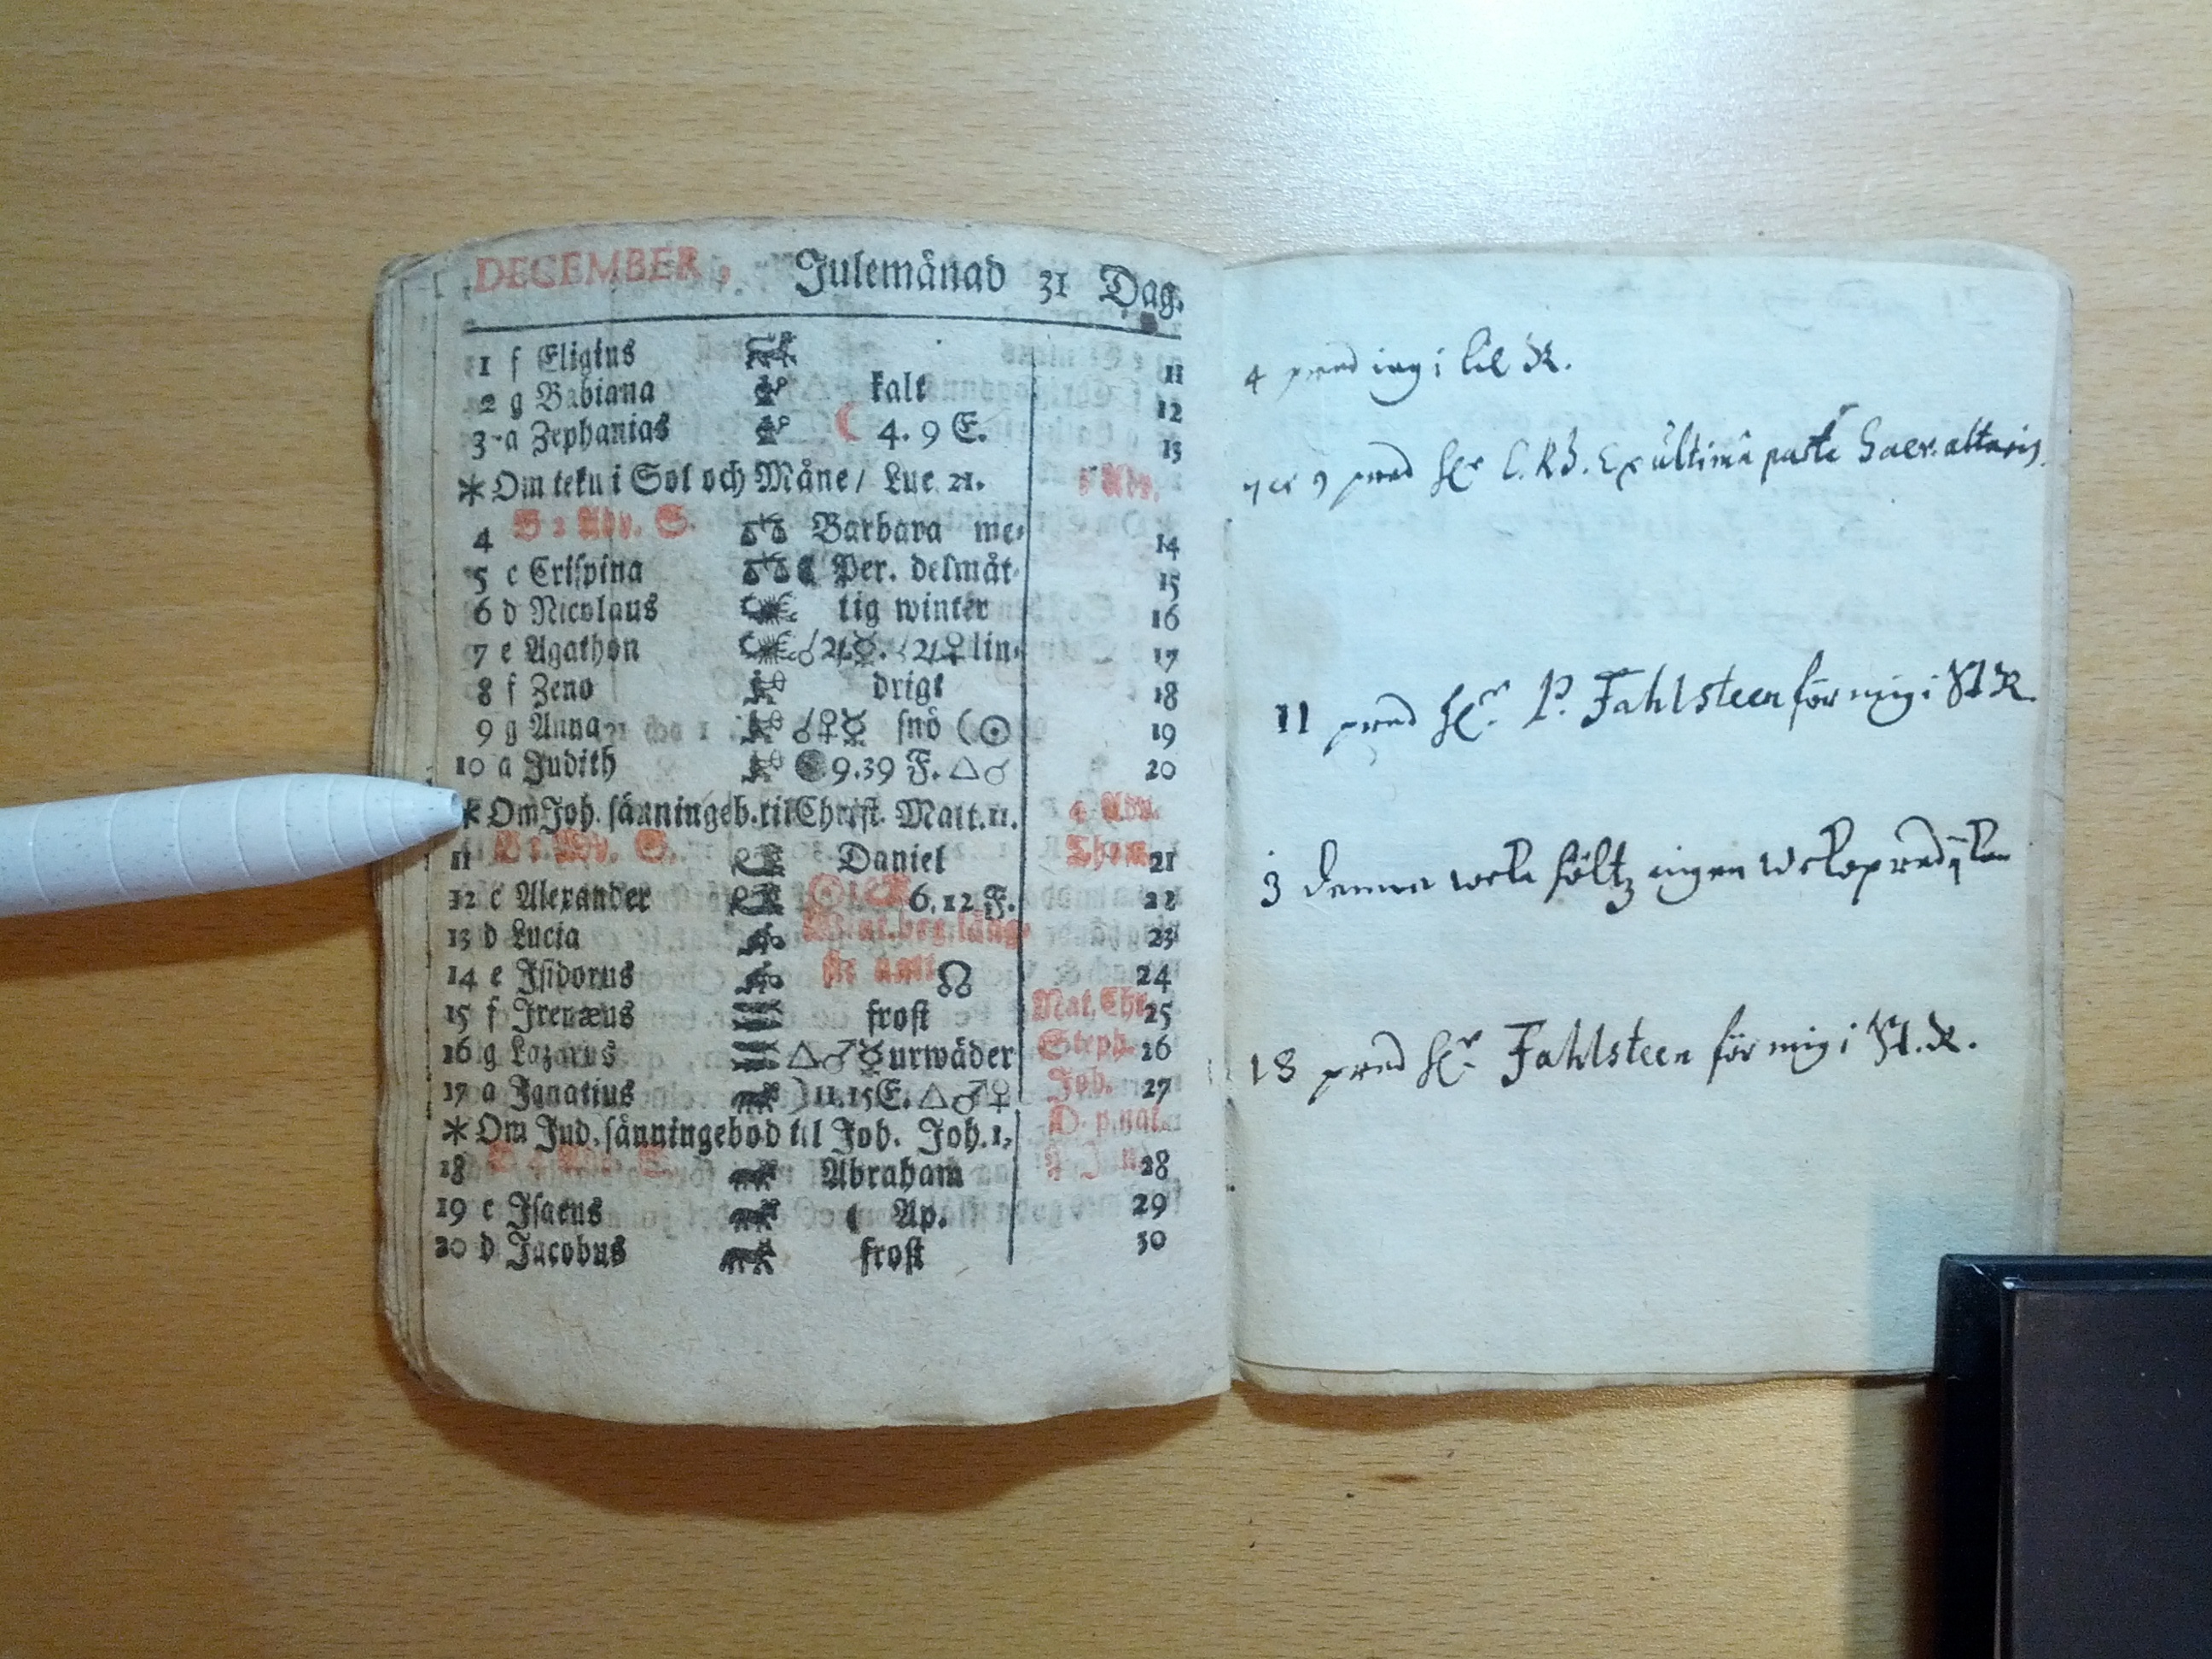 DECEMBER, Julemånad 31 Dag.
1 f Eligius 11
2 g Babiana kalt 12
3 a Zephanias ☾ 4. 9 E. 13
* Om tekn i Sol och Måne / Luc. 21. Adv.
B 2 Adv. S.
4 Barbara me- 14
5 c Crispina Per. delmåt- 15
6 d Nicolaus tig winter 16
7 e Agathon ☌♃☿. ☌♃♀ lin- 17
8 f Zeno drigt 18
9 g Anna ☌♀☿ snö (☉ 19
10 a Judith 9.39 F. △♂ 20
* Om Joh. sänningeb. til Christ. Matt. 11. 4 Adv.
B 3 Adv. S. Thom.
11 Daniel 21
12 c Alexander 6. 12 F. 22
13 d Lucia läng- 23
14 e Isidorus ste natt ☊ 24
15 f Irenæus frost Nat. Chr. 25
16 g Lazarus △♂☿ urwäder Steph. 26
17 a Ignatius ☽ 11.15 E. △♂♀ Joh. 27
* Om Jud. sänningebod til Joh. Joh. 1. D. p. nat.
B 4 Adv. S.
18 Abraham 28
19 c Isaeus Ap. 29
20 d Jacobus frost 30
4 pred iag i lil K.
9 pred Hr Ex ultimâ parte Sacr. altaris.
11 pred Hr. P. Fahlsteen för mig i St K.
denna weka höltz ingen wekopredijkan
18 pred Hr. Fahlsteen för mig i St. K.